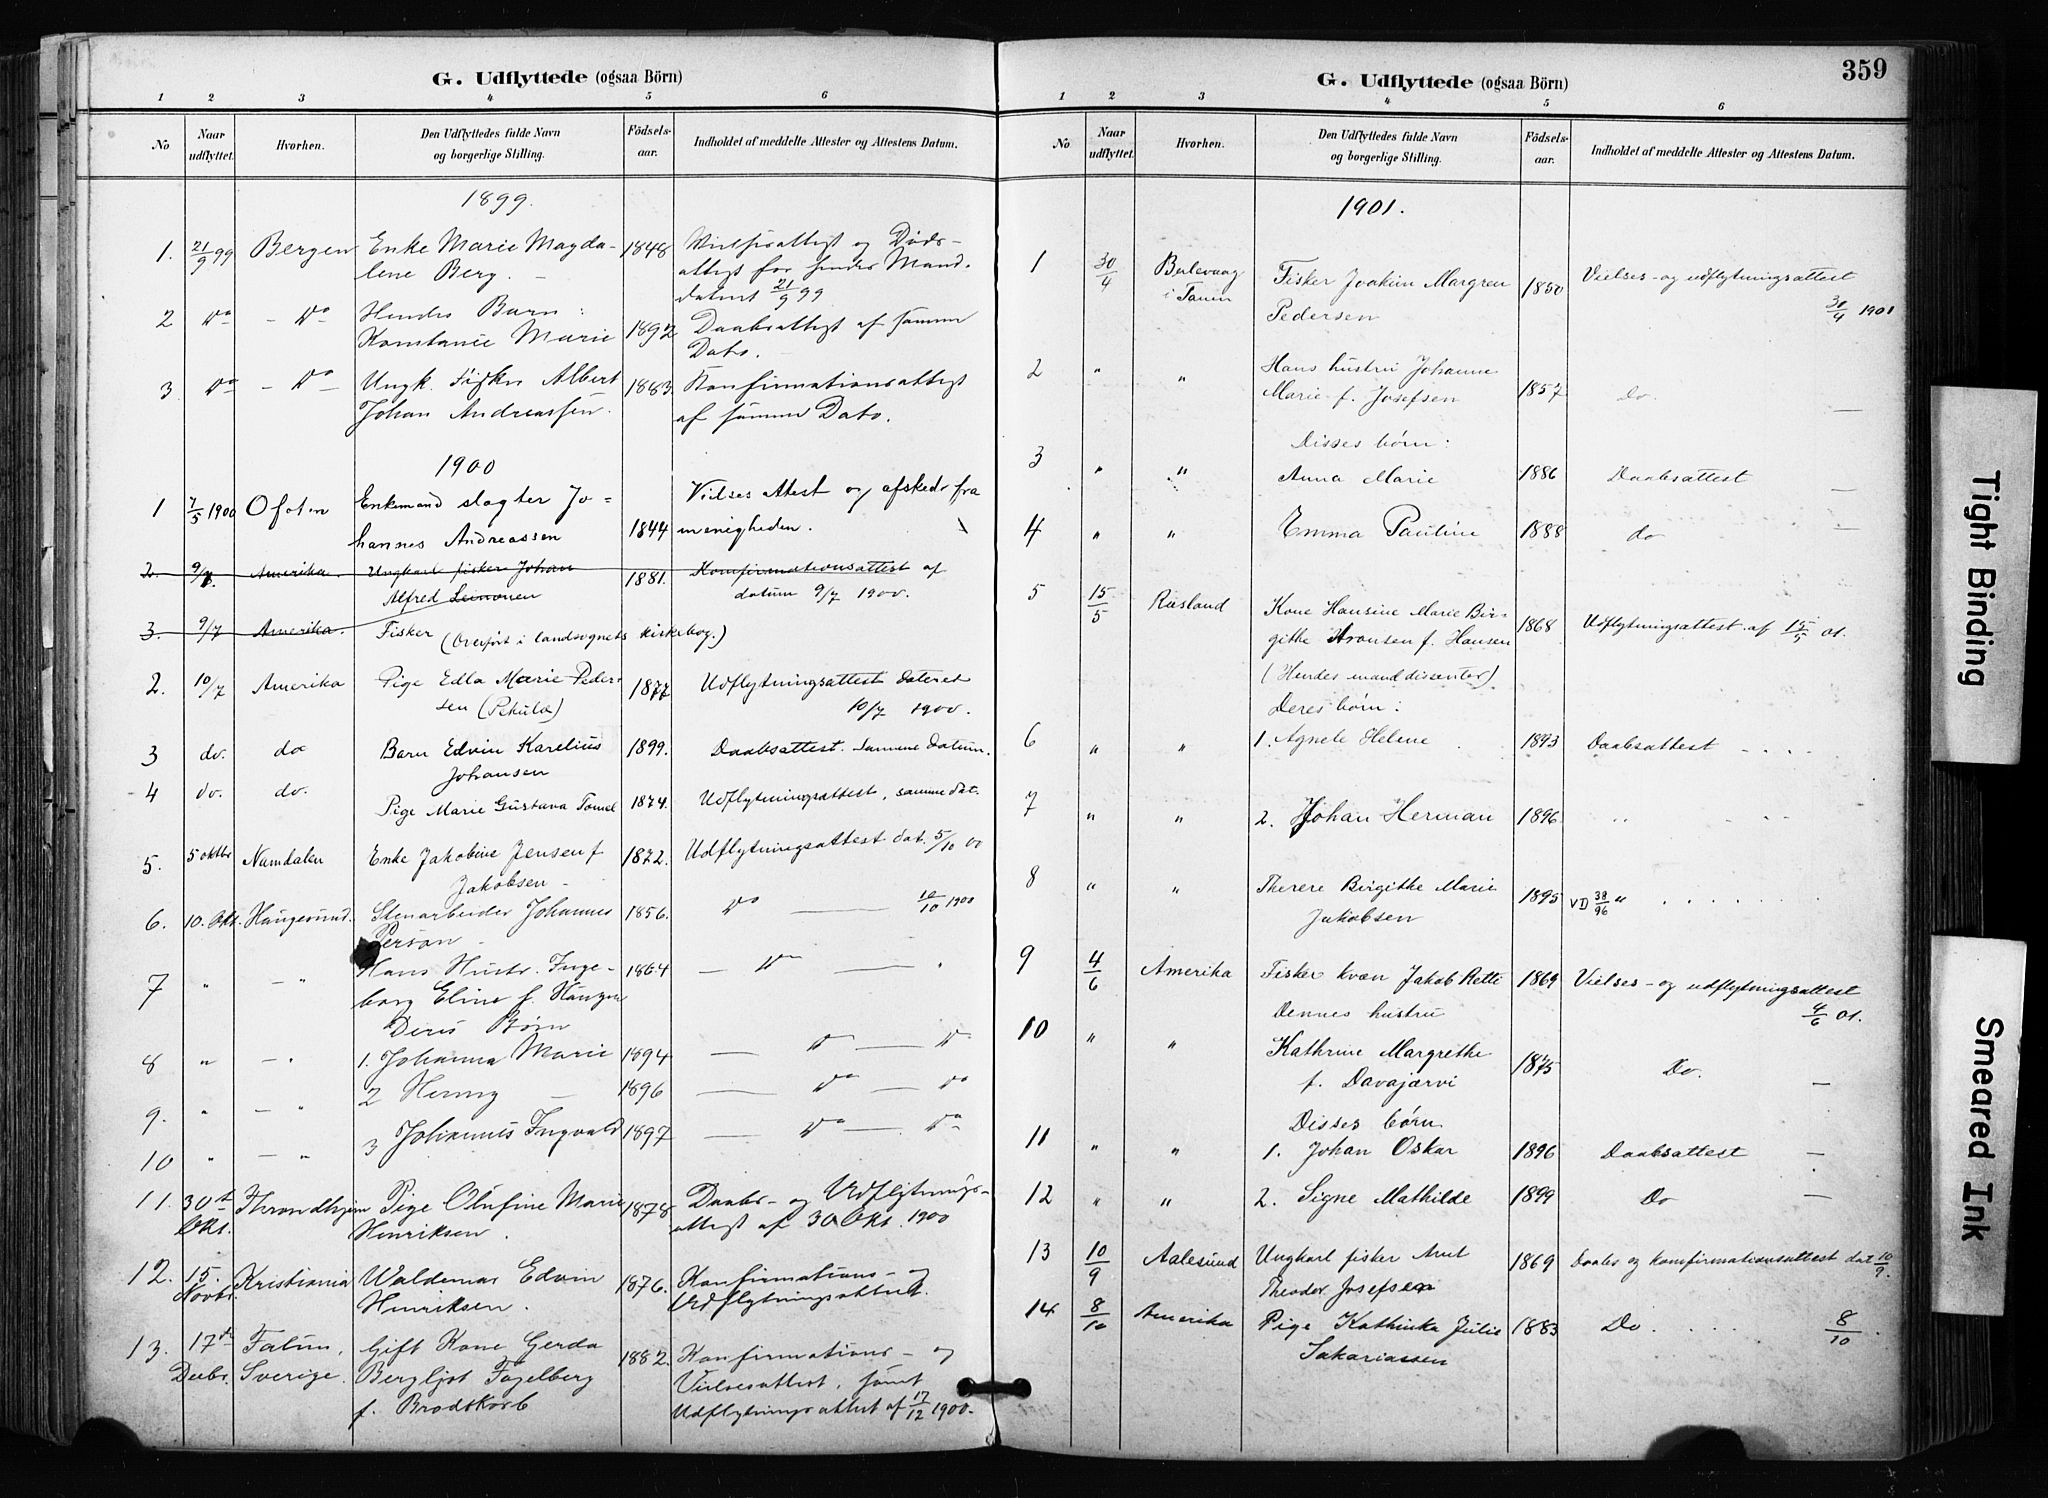 G. Udflyttede (ogsaa Börn)
1 2 3 4 5 6
No
Naar udflyttet.
Hvorhen.
Den Udflyttedes fulde Navn og borgerlige Stilling.
Födsels-aar.
Indholdet af meddelte Attester og Attestens Datum.
1899.
1. 21/9 99 Bergen Enke Marie Magda- 1848 Vielsesattest og Døds-
lene Berg. attest for hendes Mand.
dateret 21/9 99
2 Do - Do Hendes Barn:
Konstance Marie 1892 Daabsattest af samme
Dato.
3 Do - Do Ungk. Fisker Albert 1883. Konfirmationsattest
Johan Andreassen. af samme Dato.
1900
1 7/5 1900 Ofoten Enkemand slagter Jo= Vielses attest og afsked fra
hannes Andreassen 1844 menigheden.
2. 9/7. Amerika. Ungkarl fisker Johan 1881. Konfirmationsattest af
Alfred Leinonen datum 9/7 1900.
3. 9/7 Amerika. Fisker (Overført i landsognets kirkebog.)
2. 10/7 Amerika Pige Edla Marie Peder- 1877 Udflytningsattest dateret
sen (Pekula) 10/7 1900.
3 do. do Barn Edvin Karelius 1899. Daabsattest. samme datum.
Johansen
4 do. do. Pige Marie Gustava Tomel 1874. Udflytningsattest, samme dat.
5. 5 oktbr Namdalen Enke Jakobine Jensen f 1872. Udflytningsattest dat. 5/10 00
Jakobsen
6. 10. Okt. Haugesund. Stenarbeider Johannes 1856. Do — 10/10 1900
Person
7 " - " Hans Hustr. Inge- 1864 - Do — "
borg Eline f. Haugen
Deres Børn
8 " - " 1. Johanna Marie 1894 — Do — Do
9. " - " 2 Henny 1896 — Do — Do
10 " - " 3 Johannes Ingvald 1897 — Do — Do
11. 30te Okt. Throndhjem Pige Olufine Marie 1878 Daabs- og Udflytnings-
Henriksen. attest af 30 Okt. 1900
12. 15. Novbr. Kristiania Waldemar Edvin 1876. Konfirmations- og
Henriksen. Udflytningsattest.
13. 17de Decbr. Falun, Sverige. Gift Kone Gerda 1882. Konfirmations- og
Bergljot Fagelberg Vielsesattest, samt
f. Brodtkorb Udflytningsattest af 17/12 1900.
359
G. Udflyttede (ogsaa Börn)
1 2 3 4 5 6
No
Naar udflyttet.
Hvorhen.
Den Udflyttedes fulde Navn og borgerlige Stilling.
Födsels-aar.
Indholdet af meddelte Attester og Attestens Datum.
1901.
1 30/4 Berlevaag i Tanen Fisker Joakim Margren 1850 Vielses- og udflytningsattest
Pedersen 30/4 1901
2 " " Hans hustru Johanne
Marie f. Josefsen 1857 do. —
Disses børn:
3 " " Anna Marie 1886 Daabsattest —
4 " " Emma Pauline 1888 do —
5 15/5 Rusland Kone Hansine Marie Bir- 1868 Udflytningsattest af 15/5 01.
githe Aronsen f. Hansen
(Hendes mand dissenter)
Deres børn:
6 " " 1. Agnete Helene 1893 Daabsattest . . . .
7 " " 2. Johan Herman 1896 " . .
8 " " Therese Birgithe Marie 1895 VD 38/96 " . . . . . .
Jakobsen
9 4/6 Amerika Fisker kvæn Jakob Retti 1869 Vielses- og udflytningsattest
4/6 01.
Dennes hustru
10 " " Kathrine Margrethe 1875 Do. —
f. Davajærvi
Disses børn
11 " " 1. Johan Oskar 1896 Daabsattest —
12 " " 2. Signe Mathilde 1899 Do —
13 10/9 Aalesund Ungkarl fisker Arnt 1869 Daabs og konfirmationsattest dat 10/9.
Theodor Josefsen
14 8/10 Amerika Pige Kathinka Julie 1883 Do. . . . 8/10.
Sakariassen
Tight Binding
Smeared Ink